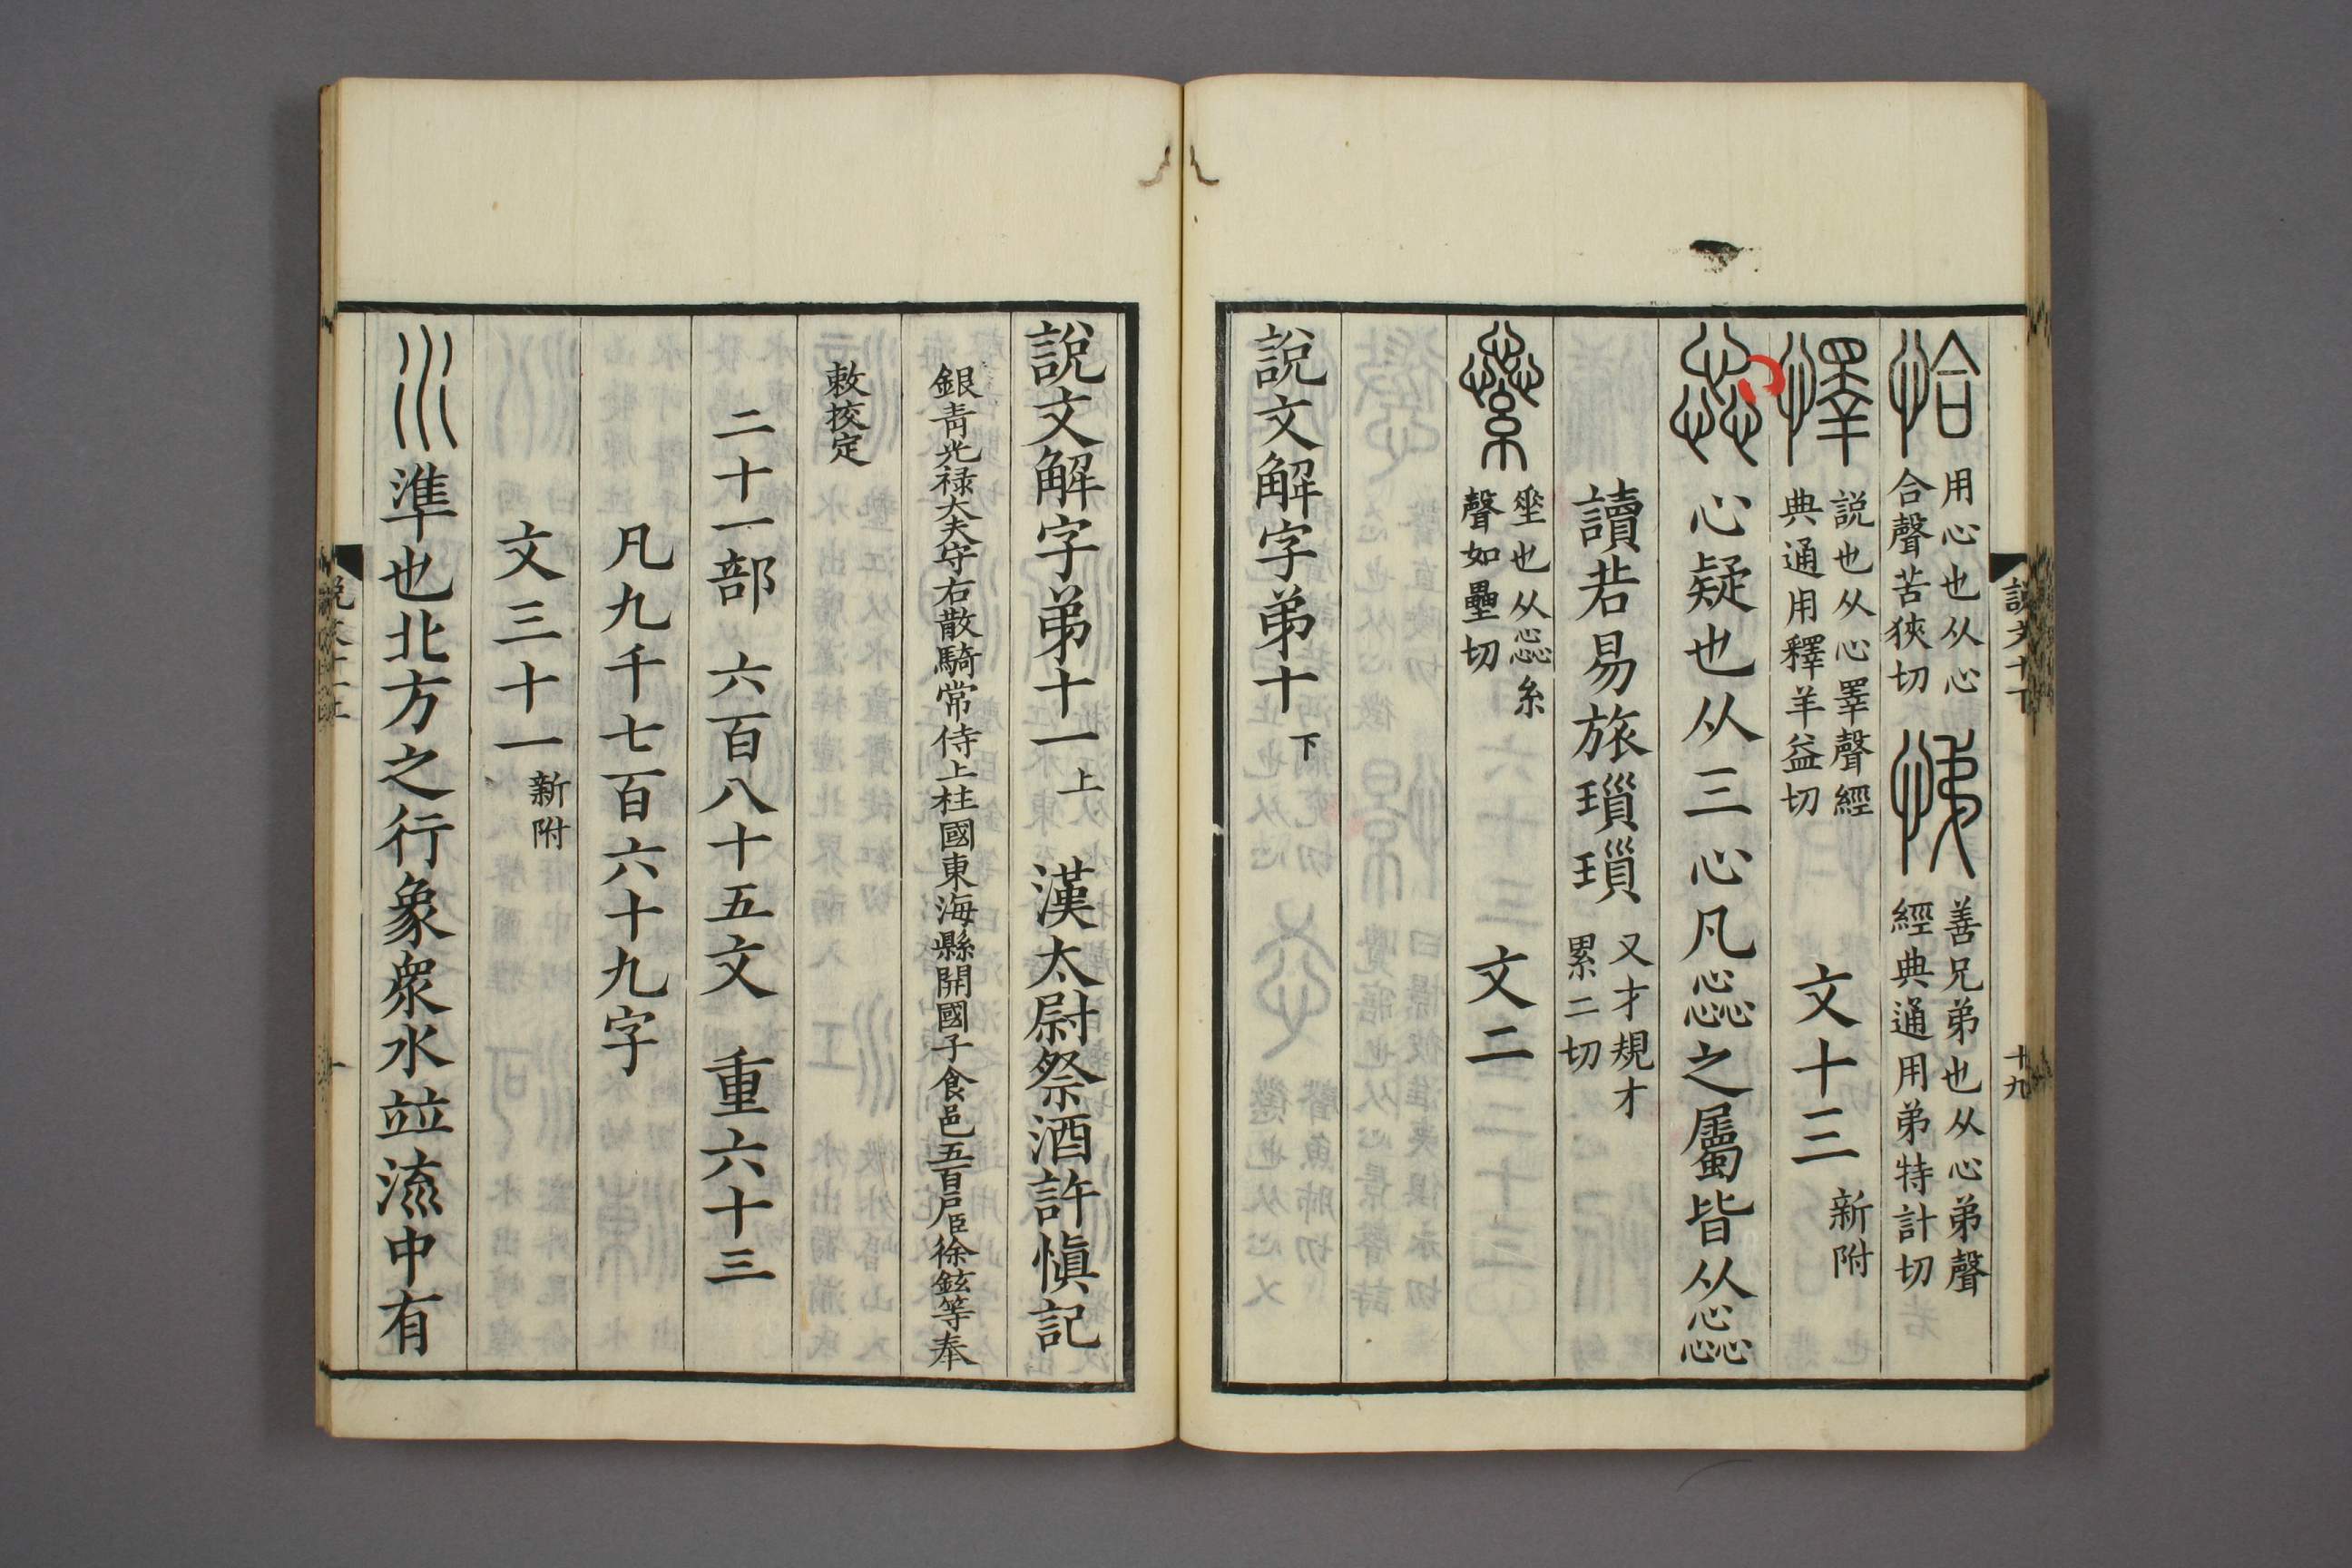 恰用心也从心合聲苦狹切 悌善兄弟也从心弟聲經典通用弟特計切
懌說也从心睪聲經典通用釋羊益切 文十三新附
惢心疑也从三心凡惢之屬皆从惢
讀若易旅瑣瑣又才規才累二切
繠𠂹也从惢糸聲如壘切 文二
說文解字弟十下
說文解字弟十一上 漢太尉祭酒許慎記
銀青光祿大夫守右散騎常侍上柱國東海縣開國子食邑五百戶臣徐鉉等奉
敕挍定
二十一部 六百八十五文 重六十三
凡九千七百六十九字
文三十一新附
水準也北方之行象衆水竝流中有
說文十下
十九
說文十一上
一